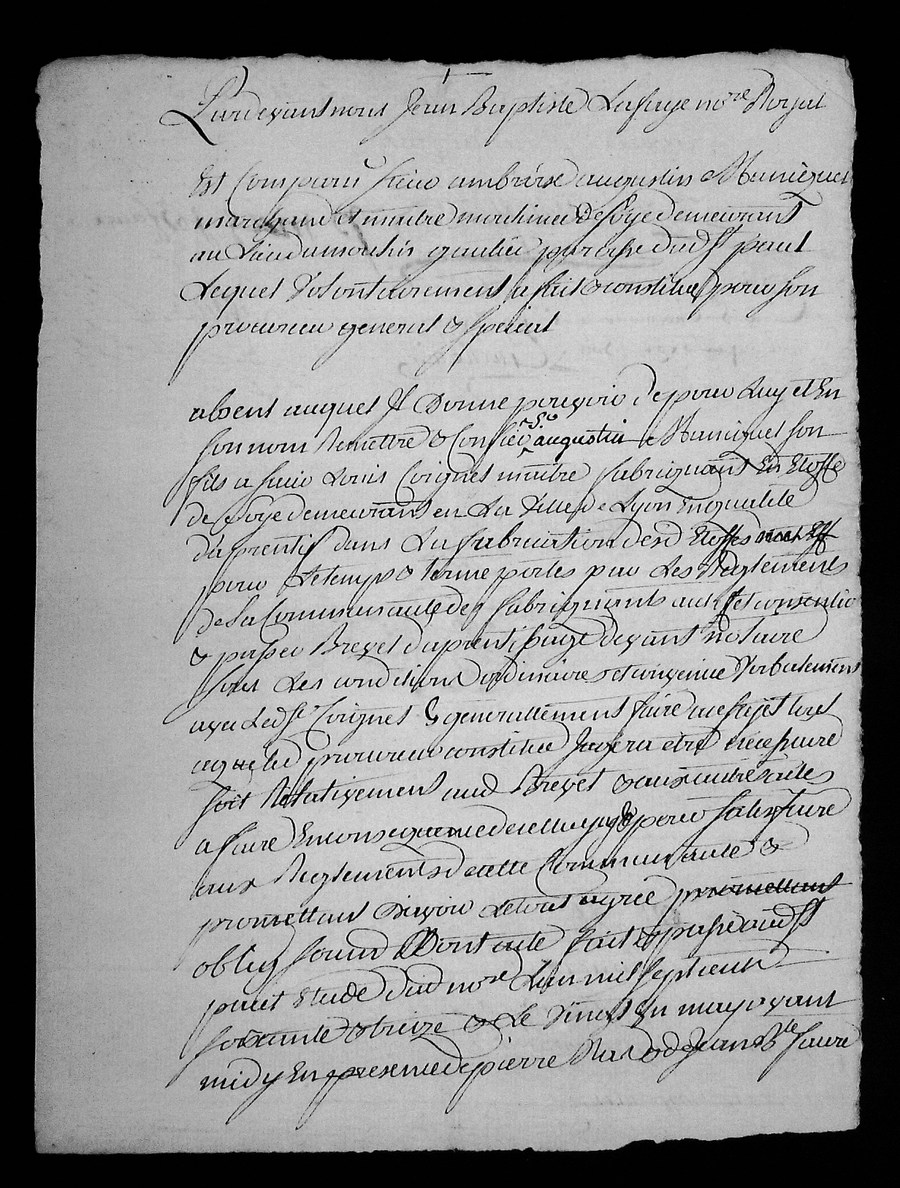 Pardevant nous Jean Baptiste Lafaye no.re Royal
Est Comparu sieur ambroise augustin Municquet
marchand et maitre moulinier de soye demeurant
au Lieu du moulin gautier parroisse dud St paul
Lequel Volontairement a fait & constitué pour son
procureur general & special
absent auquel Il Donne pouvoir de pour Luy et En
son nom Remettre & Confier Sr augustin Municquet son
fils a sieur Louis Coignet maitre fabriquant En Etoffe
de soye demeurant en La Ville de Lyon En qualité
daprentif dans La fabrication desd Etoffes
pour Le temps & terme portés par Les Reglements
de La Communauté des fabriquants aud et consentir
& passer Brevet daprentissage devant notaire
sous Les conditions ordinaires et convenue Verbalement
avec Led Sr Coignet & generallement faire au sujet tout
ce que led procureur constitué Jugera être nécéssaire
soit Relativement aud Brevet & aux autres actes
a faire En consequence de celluy cy & pour satisfaire
aux Reglements de cette Communauté &
promettant D'avoir Le tout agréé promettant
oblig soumd Dont acte fait & passé aud St
paul Etude dud no.re L'an mil sept cent
soixante & treize & Le Vingt Un may avant
midy En presence de pierre Nard & de Jean B.te faure